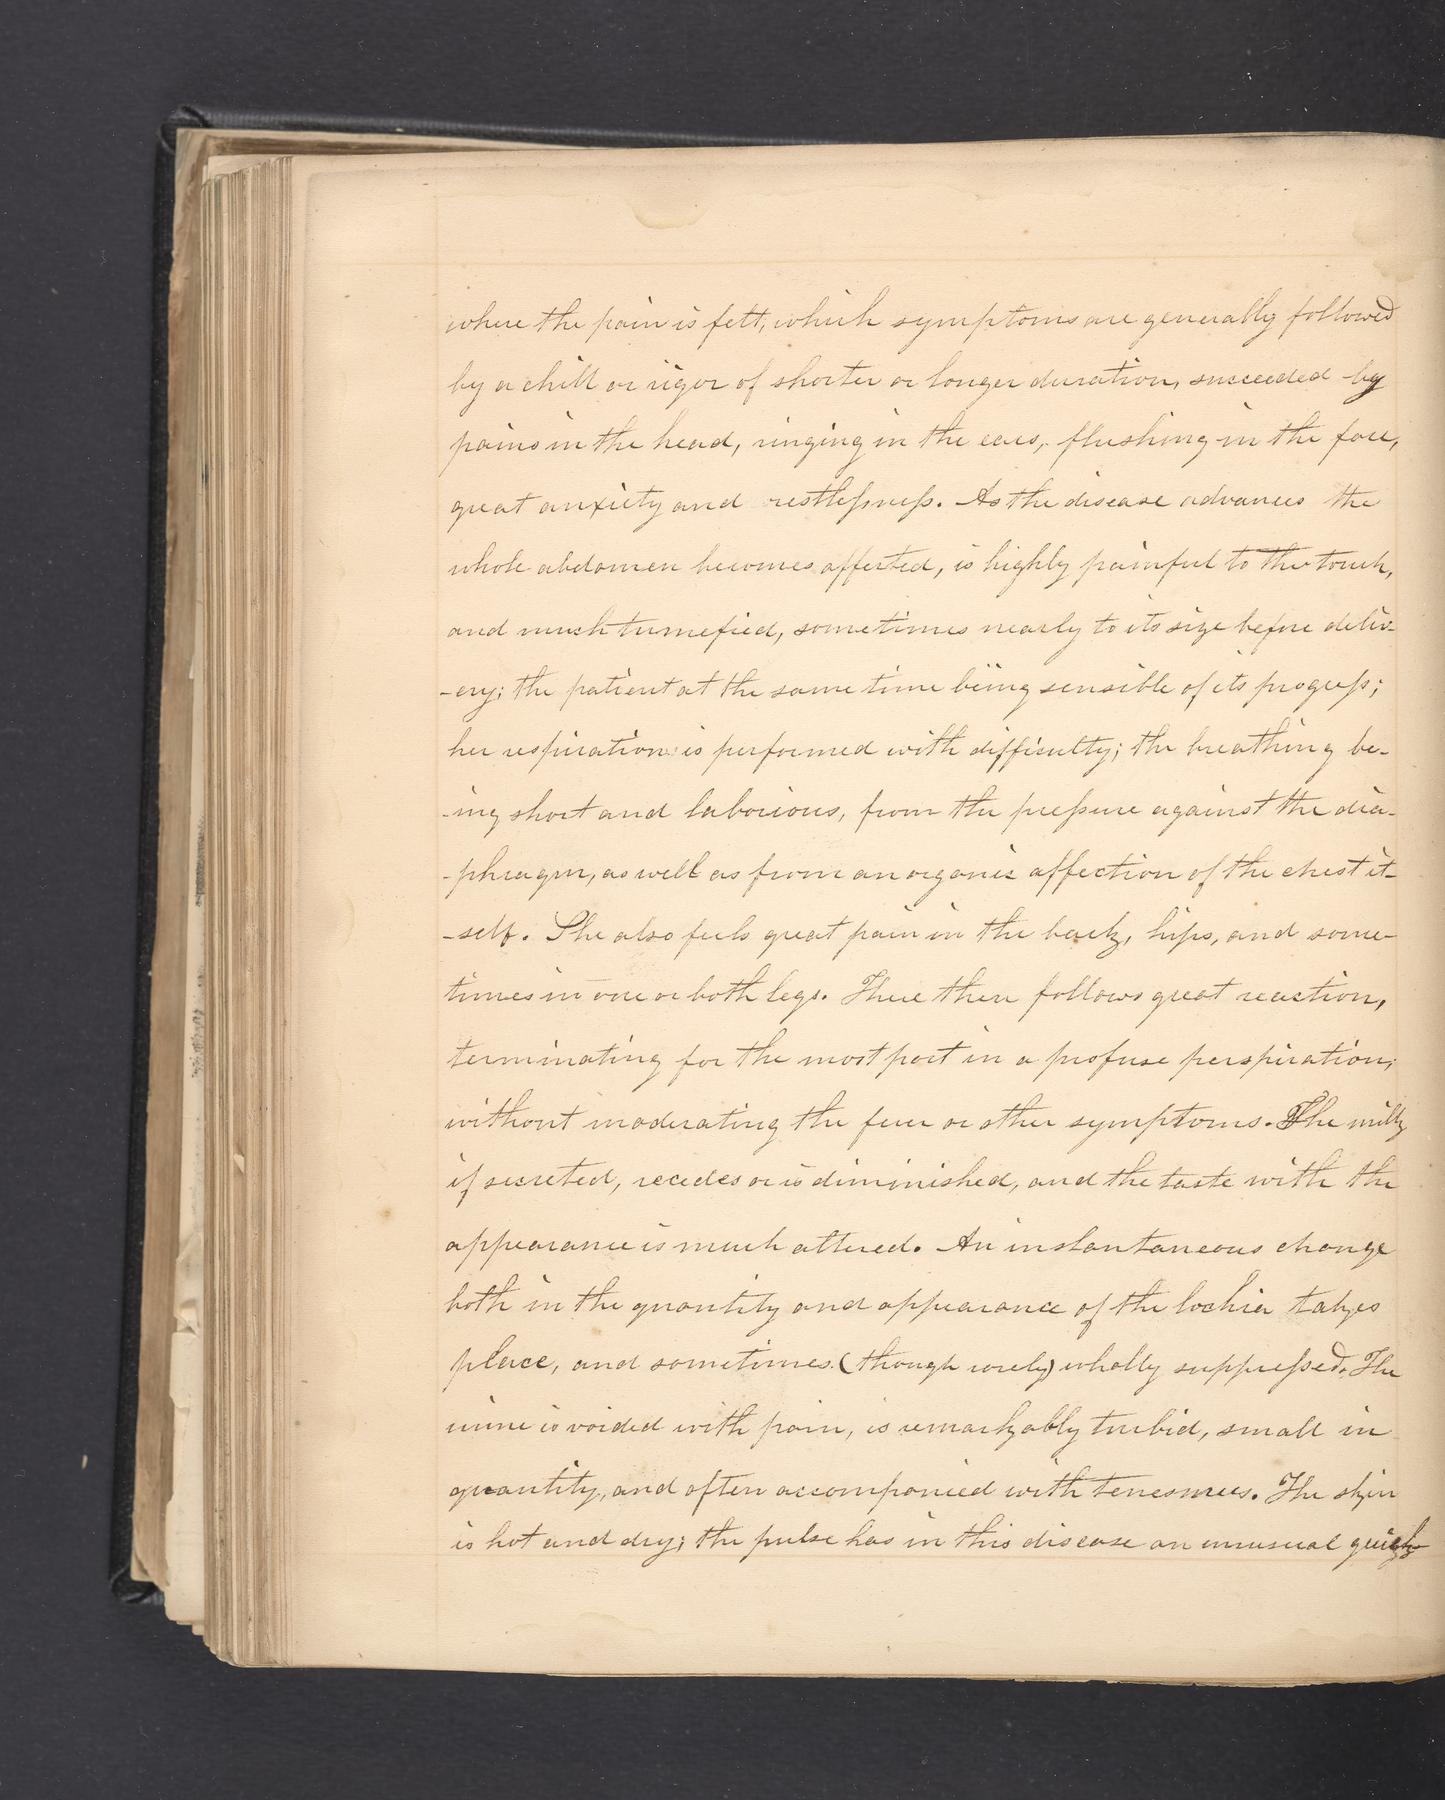 where the pain is felt; which symptoms are generally followed
by a chill or rigor of shorter or longer duration, succeeded by
pains in the head, ringing in the ears, flushing in the face,
great anxiety and restleſsneſs. As the disease advances the
whole abdomen becomes affected, is highly painful to the touch,
and much tumefied, sometimes nearly to its size before deliv-
-ery; the patient at the same time being sensible of its progreſs;
her respiration is performed with difficulty; the breathing be-
-ing short and laborious, from the preſsure against the dia-
-phragm, as well as from an organic affection of the chest it-
-self. She also feels great pain in the back, hips, and some-
times in one or both legs. There then follows great reaction,
terminating for the most part in a profuse perspiration;
without moderating the fever or other symptoms. The milk
if secreted, recedes or is diminished, and the taste with the
appearance is much altered. An instantaneous change
both in the quantity and appearance of the lochia takes
place, and sometimes (though rarely) wholly suppreſsed. The
urine is voided with pain, is remarkably turbid, small in
quantity, and often accompanied with tenesmus. The skin
is hot and dry; the pulse has in this disease an unusual quick